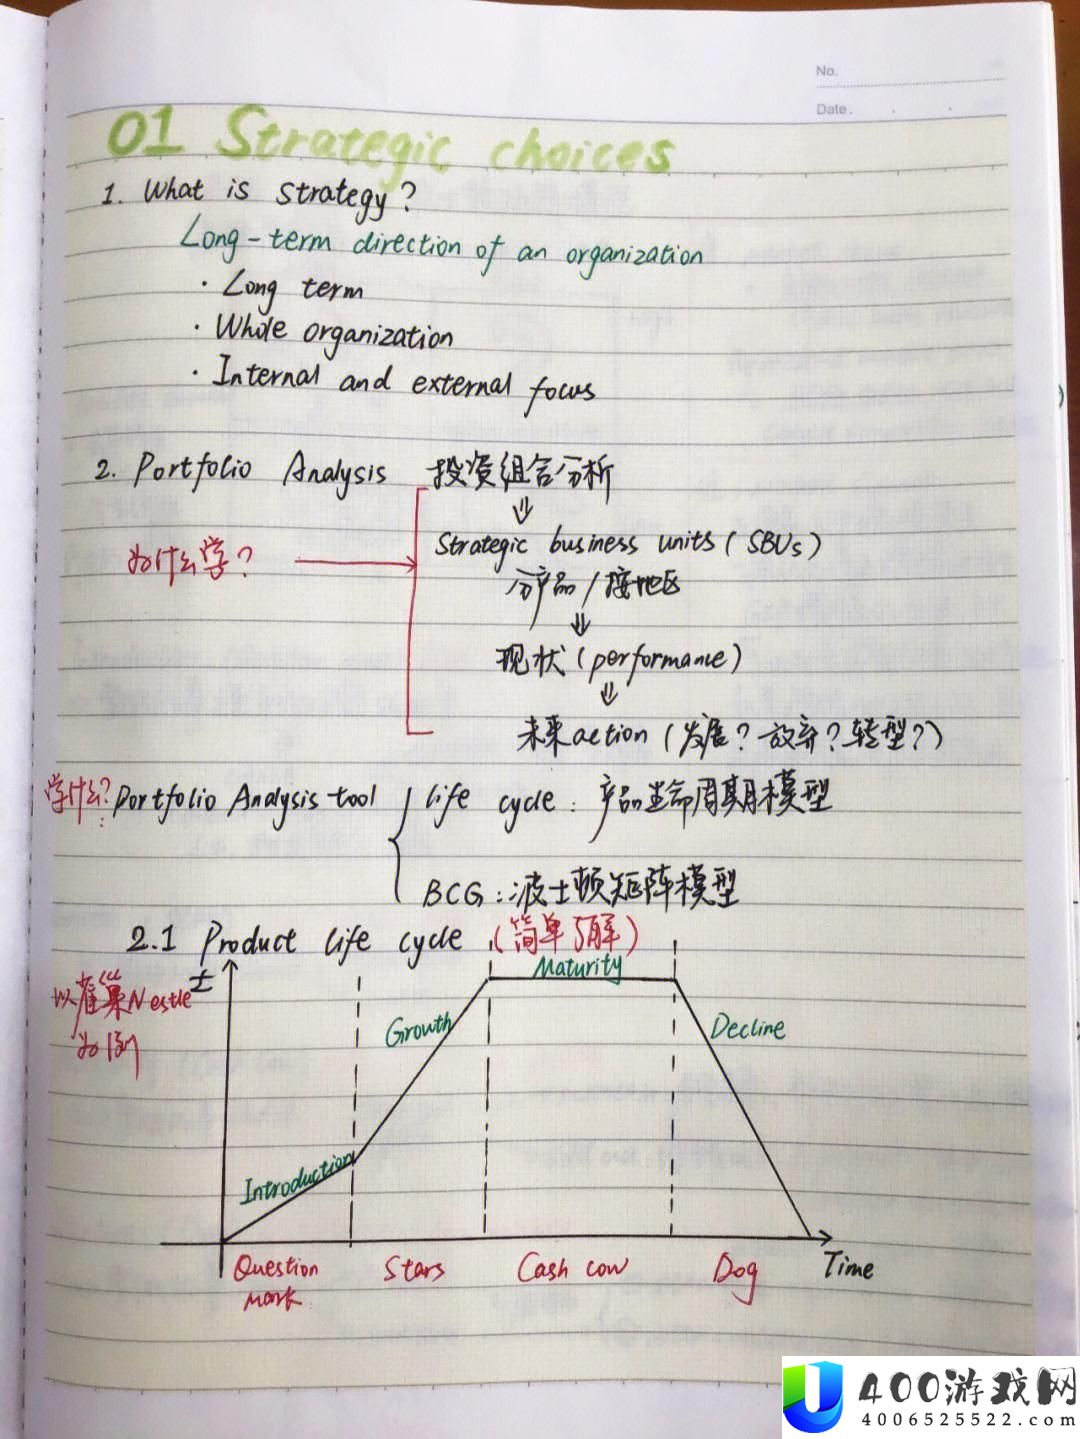 No.
Date.
01 Strategic choices
1. What is strategy?
Long-term direction of an organization
· Long term
· Whole organization
· Internal and external focus
2. Portfolio Analysis 投资组合分析
为什么学?
Strategic business units (SBUs)
分产品/按地区
现状(performance)
未来action(发展?放弃?转型?)
学什么?
Portfolio Analysis tool
life cycle: 产品生命周期模型
BCG: 波士顿矩阵模型
2.1 Product life cycle (简单了解)
以雀巢Nestle
为例
£
Introduction
Growth
Maturity
Decline
Question
mark
Stars
Cash cow
Dog
Time
400游戏网
4006525522.com